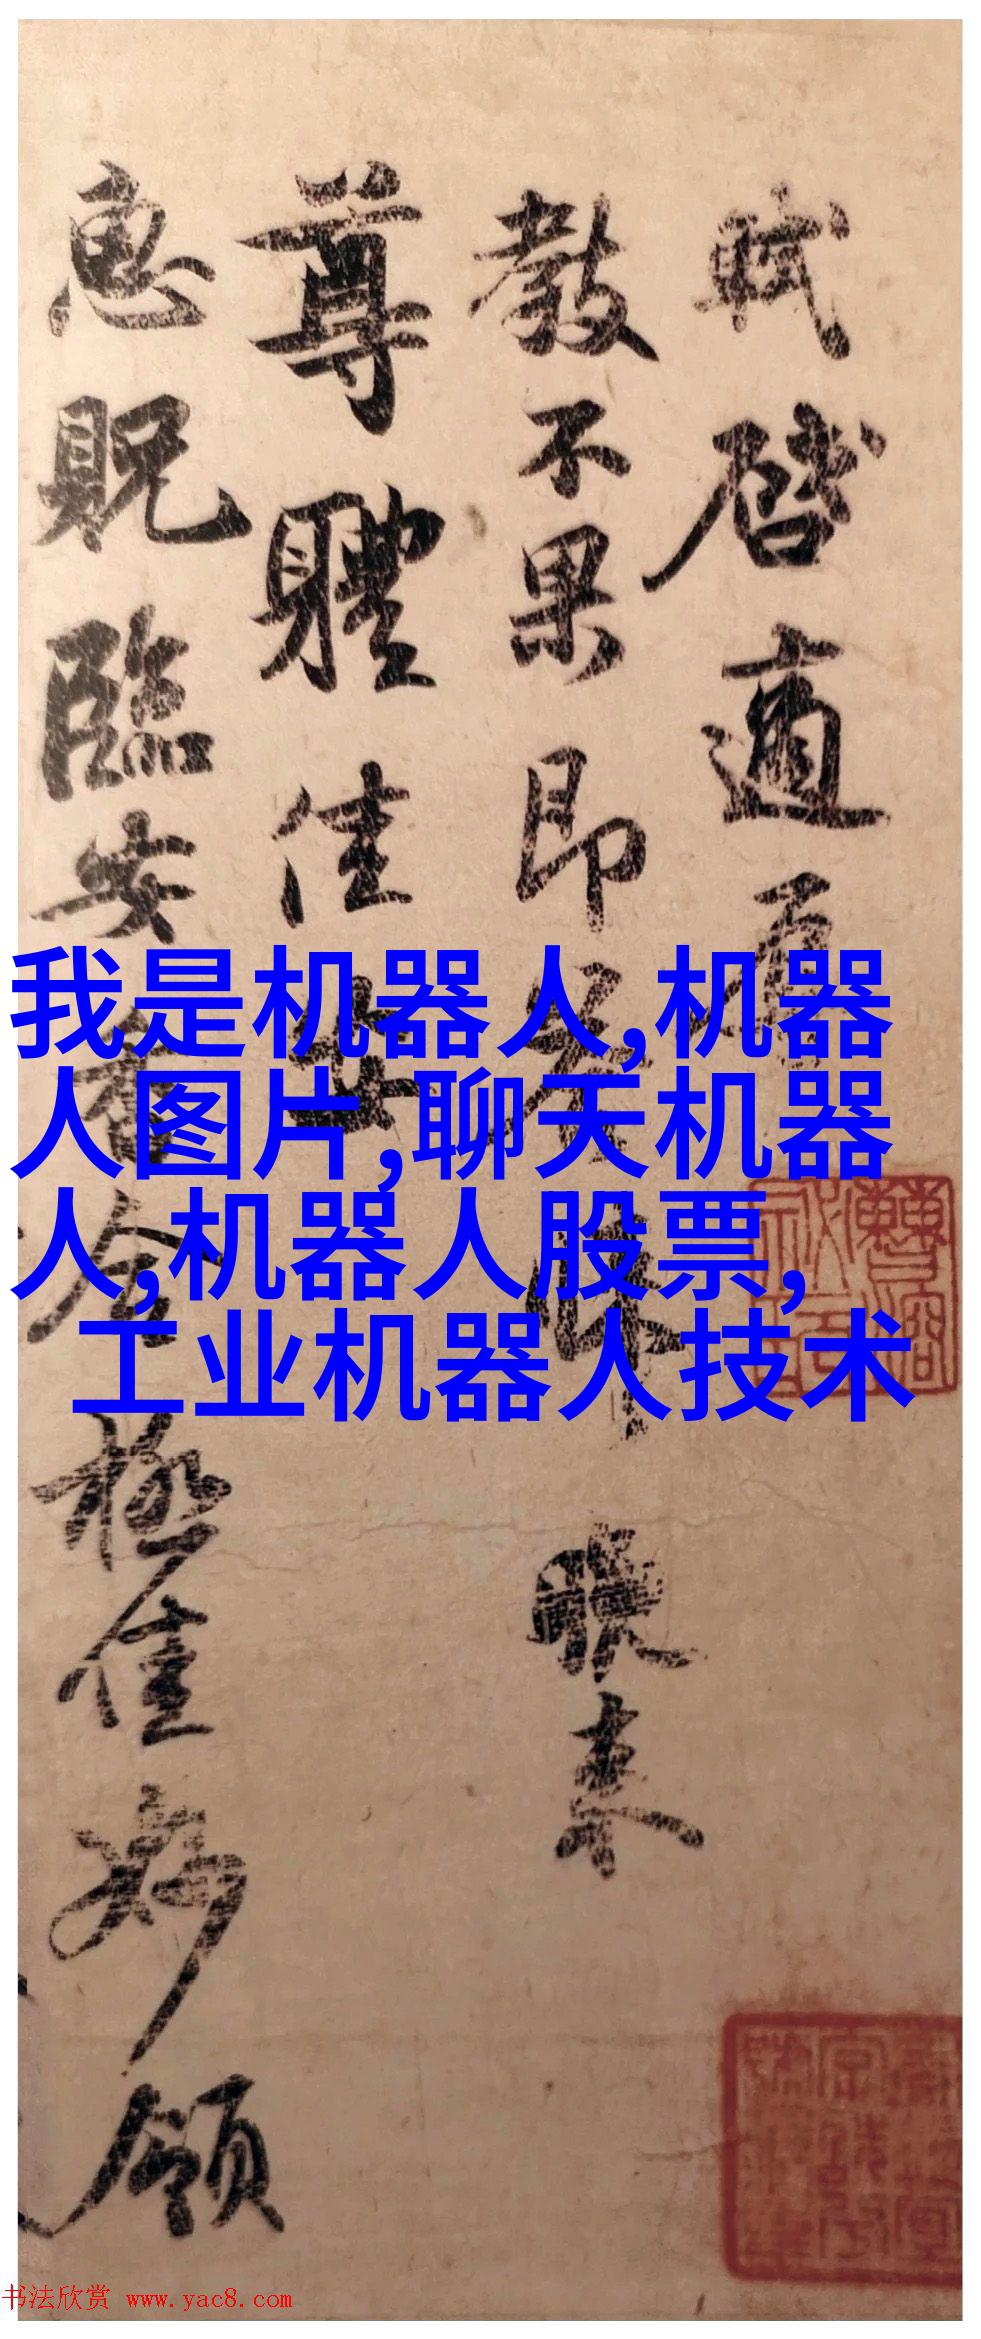 軾啓適辱
教不果即 晚來
尊體佳安
惠貺臨安香合極佳妙領
我是机器人,机器
人图片,聊天机器
人,机器人股票,
工业机器人技术
书法欣赏 www.yac8.com